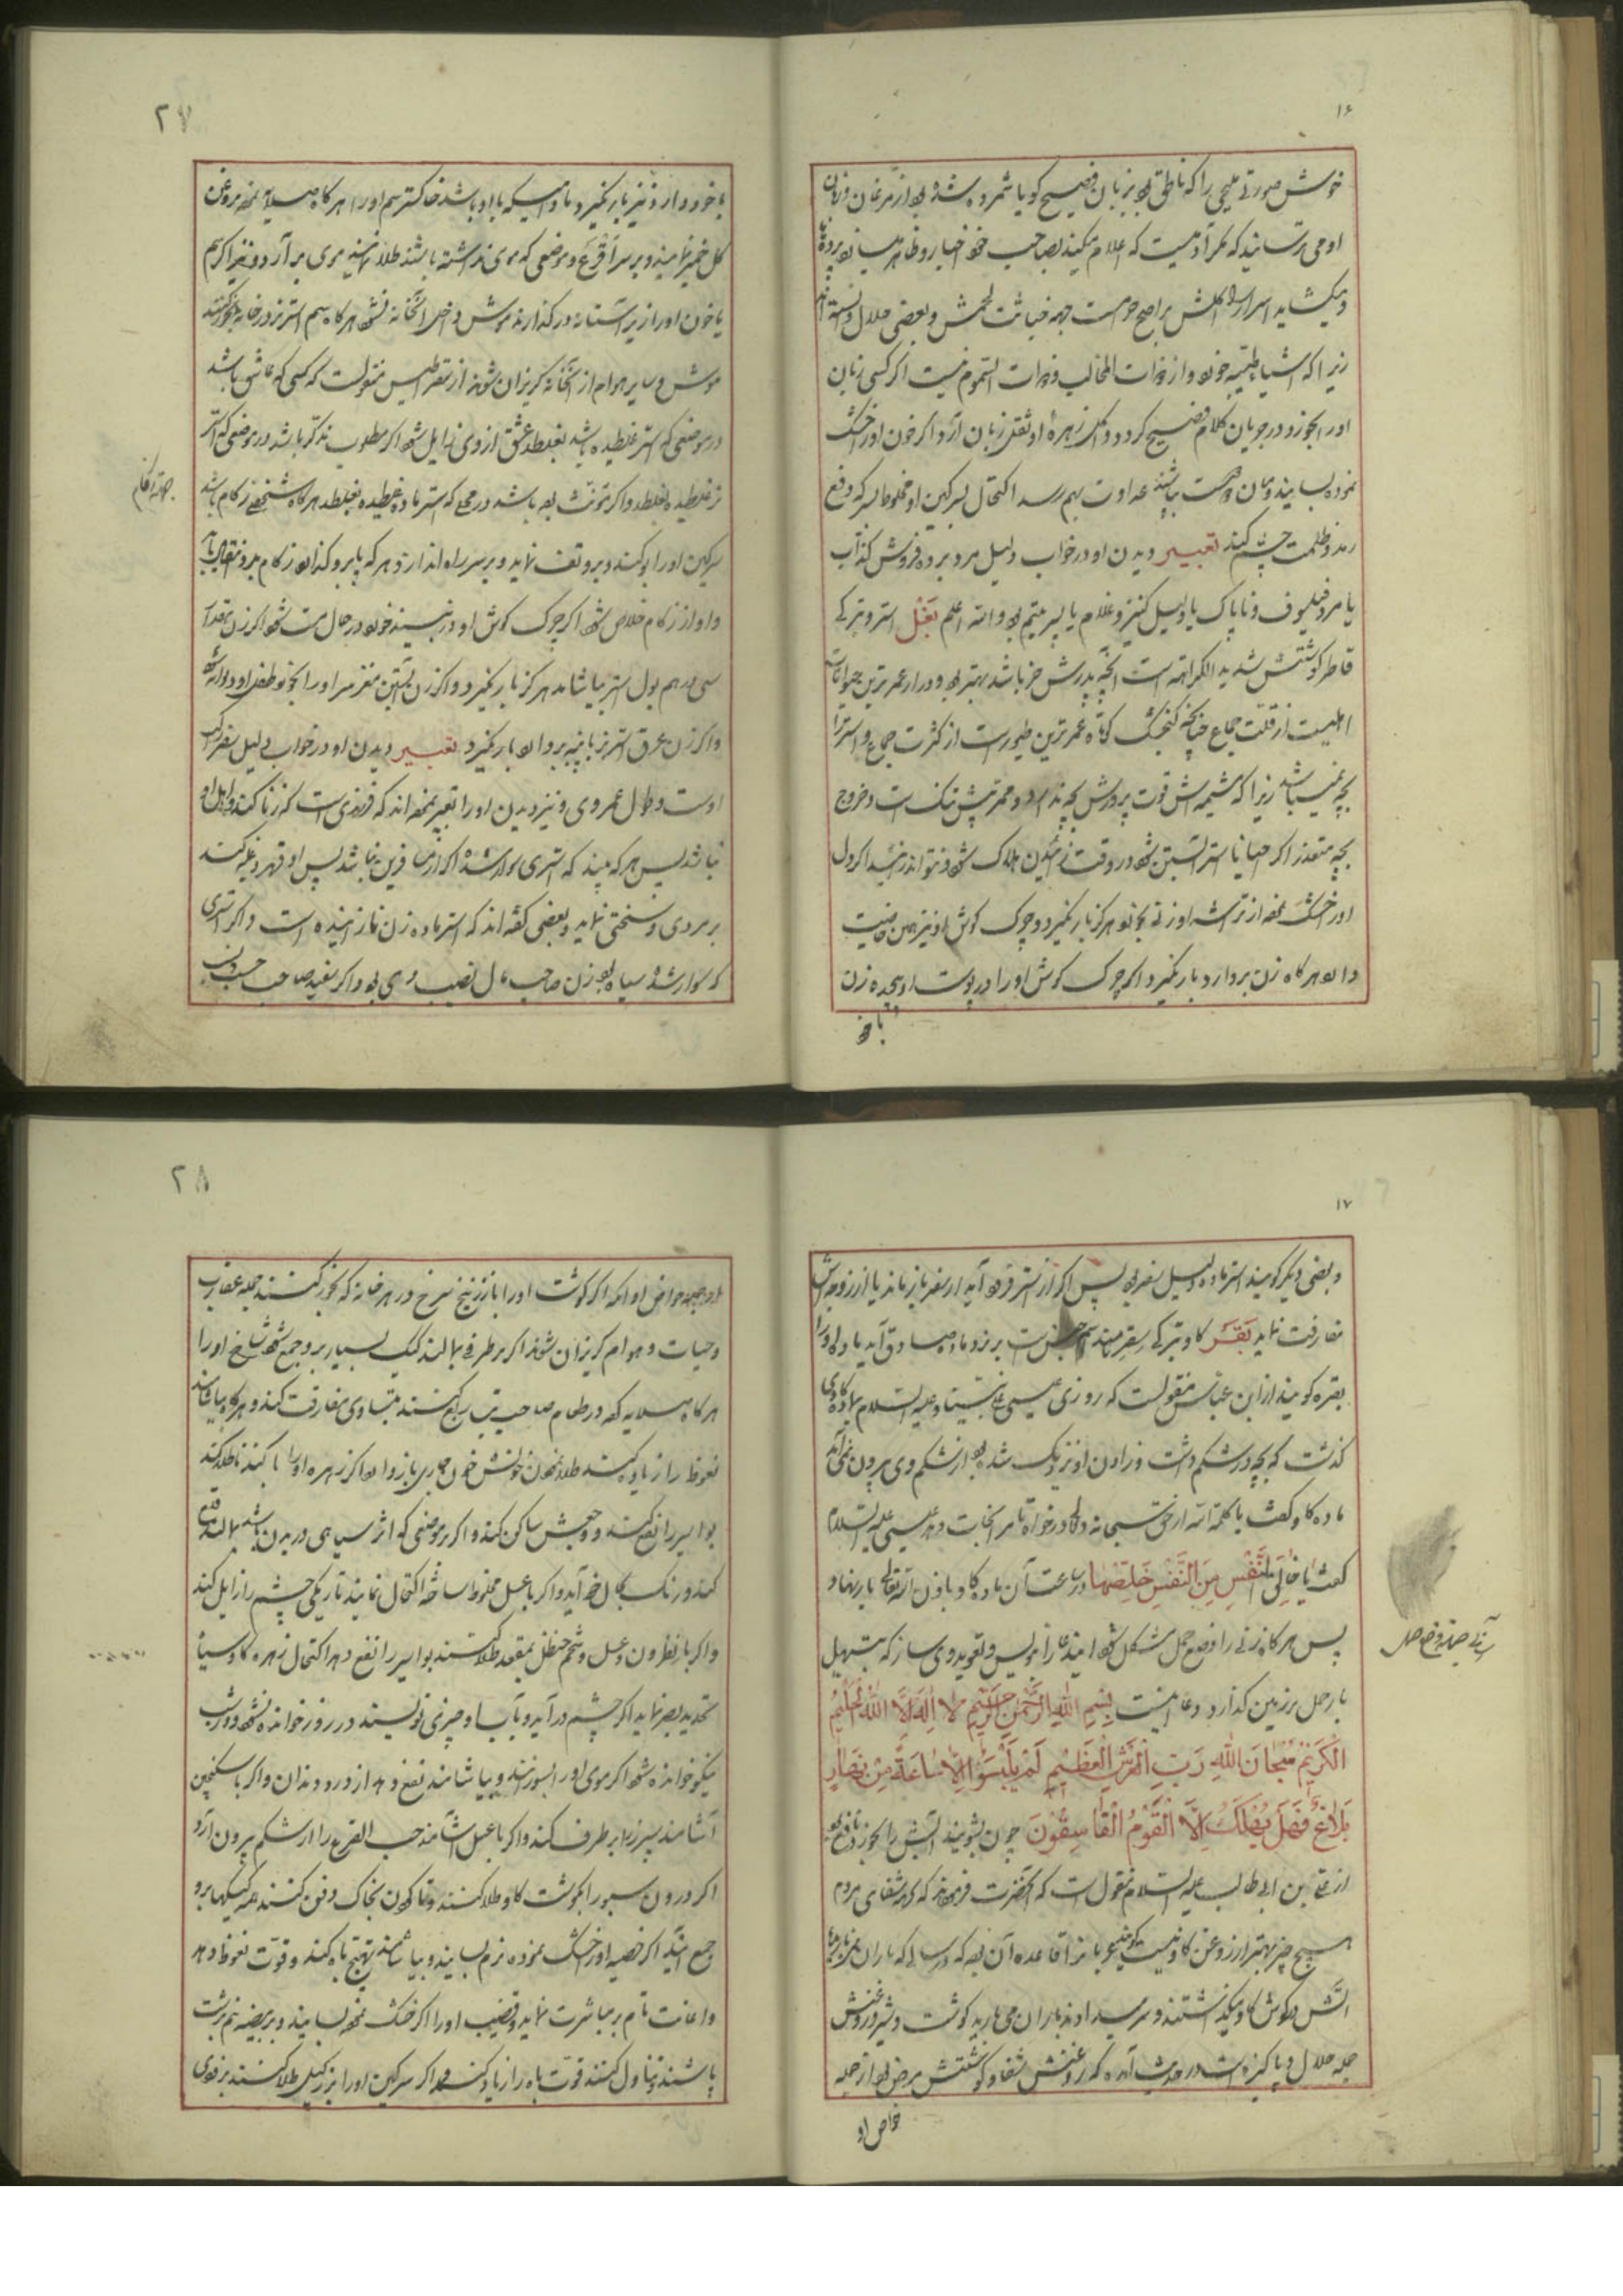 ۱۶
خوش صورتی ملیحی را که ناطق بود بزبان فصیح گویا شمرده شده بود از مرغان و زبان
او می‌رساند که مکر آدمیست که اعلام میکند بصاحب خود اخبار و ظاهر میسازد پرده
و میکشاید اسرار را اکلش براصح حرامست جهة خباثت لحمش و بعضی حلال دانسته‌اند
زیرا که اشیاء طیبه خورد و از ذوات المخالب و ذوات السموم نیست اگر کسی زبان
او را بخورد در جریان کلام فصیح گردد و اکل زهرهٔ او ثقل زبان آرد اگر خون او را خشک
نموده بسایند و میان دو دوست بپاشند عداوت بهم رسد اکتحال سرکین او مخلوط بسرکه دفع
رمد و ظلمت چشم کند تعبیر دیدن او در خواب دلیل مرد برده فروش کذاب
یا مرد فیلسوف و ناپاک یا دلیل کنیز و غلام یا پسر یتیم بود والله اعلم بَغْل استر و بترکی
قاطر گوشتش شدید الکراهة است آنچه پدرش خر باشد بهتر بود و دراز عمرترین حیوانات
اهلیست از قلت جماع چنانچه گنجشک کوتاه عمرترین طیورست از کثرت جماع و استر را
بچه نمیباشد زیرا که مشیمه‌اش قوت پرورش بچه ندارد و ممرش تنک است و خروج
بچه متعذر اگر احیانا استر آبستن شود در وقت زائیدن هلاک شود و نتواند زائید اگر دل
او را خشک نموده از تراشه او زنی بخورد هرگز بار نگیرد و چرک گوش او نیز همین خاصیت
دارد هرگاه زن بردارد بار نگیرد و اگر چرک گوش او را در پوست او پیچیده زن
با خود
۲۷
با خود دارد نیز بار نگیرد مادامیکه با او باشد خاکستر سم او را هرگاه سائیده بروغن
گل خمیر نمایند و بر سر اقرع و موضعی که موی نداشته باشد طلا نمایند موی بر آرد و نیز اگر سم
یا خون او را زیر آستانه در گذارند موش داخل آنخانه نشود هرگاه سم استر در خانه بخور کنند
موش و سایر هوام از آنخانه گریزان شوند از سقراطیس منقولست که کسی که عاشق باشد
در موضعی که استر غلطیده باشد بغلطد عشق از وی زایل شود اگر مطلوب مذکر باشد در موضعی که استر
نر غلطیده بغلطد و اگر مؤنث بود باشد در محلی که استر ماده غلطیده بغلطد هرگاه شخصی زکام باشد
جهة زکام
سرکین او را بو کند و برو تف نماید و بر سر راه اندازد هر که پا برو گذارد زکام برو منتقل یابد
و او از زکام خلاص شود اگر چرک گوش او در نبیذ خورد در حال مست شود اگر زن بقدر
سی درهم بول استر بیاشامد هرگز بار نگیرد و اگر زن آبستن مغز سر او را بخورد طفل او دیوانه شود
و اگر زن عرق استر نر با پنبه بردارد بار نگیرد تعبیر دیدن او در خواب دلیل سفر
اوست و طول عمر وی و نیز دیدن او را تعبیر نموده‌اند که فرزندی است که زنا کند و اهل او
نباشد پس هر که بیند که استری سوار شده اگر ارسا قرین نباشد پس او قهر و غلبه کند
بر مردی و سختی نماید و بعضی گفته‌اند که استر ماده زن نازائنده است و اگر استری
که سوار شده سیاه بود زن صاحب مال نصیب وی بود و اگر سفید صاحب حسب و نسب
۱۷
و بعضی دیگر گویند استر ماده دلیل سفر بود پس اگر از استر فرود آید از سفر باز ماند یا از زوجه‌اش
مفارقت نماید بَقَر گاو بترکی سغر نامند اسم جنس است بر نر و ماده صادق آید یا ماده او را
بقره گویند از ابن عباس منقولست که روزی عیسی علی نبینا و علیه السلام بماده گاوی
گذشت که بچه در شکم داشت و زادن او نزدیک شده بود از شکم وی بیرون نمی‌آمد
ماده گاو گفت یا کلمة الله از حق سبحانه دعا در خواه تا مرا نجات دهد عیسی علیه السلام
گفت یَا خَالِقَ النَّفْسِ مِنَ النَّفْسِ خَلِّصْهَا در ساعت آن ماده گاو باذن الله تعالی بار بنهاد
پس هرگاه زنی را وضع حمل مشکل شود این دعا را بنویس و تعویذ وی ساز که بتسهیل
بار حمل بر زمین گذارد و دعا اینست بِسْمِ اللهِ الرَّحْمٰنِ الرَّحِیْمِ لَا اِلٰهَ اِلَّا اللهُ الْحَلِیْمُ
الْکَرِیْمُ سُبْحَانَ اللهِ رَبِّ الْعَرْشِ الْعَظِیْمِ لَمْ یَلْبَثُوْا اِلَّا سَاعَةً مِنْ نَهَارٍ
بَلَاغٌ فَهَلْ یُهْلَکُ اِلَّا الْقَوْمُ الْفَاسِقُوْنَ چون بشویند آبش را بخورد نافع بود
از علی بن ابی طالب علیه السلام منقول است که آنحضرت فرمودند که از برای شفای مردم
هیچ چیز بهتر از روغن گاو نیست
آتش در گوش گاو میگذاشتند و سر میدادند باران می‌بارید گوشت و شیر و روغنش
جمله حلال و پاکیزه است در حدیث آمده که روغنش شفا و گوشتش مرض بود از جمله
خواص او
۲۸
خواص او آنکه اگر گوشت او را با زرنیخ سرخ در هر خانه که بخور کنند جمله عقارب
و حیات و هوام گریزان شوند اگر بر ظرفی بمالند کیک بسیار برو جمع شود شاخ او را
هرگاه سائیده در طعام صاحب تب ربع کنند تبش از وی مفارقت کند و هرگاه بیاشامند
نعوظ را زیاده کند طلا نمودن خونش خون جاری باز دارد اگر زهره او را با گندنا طلا کنند
بواسیر را نفع کند و وجعش ساکن کند و اگر بر موضعی که اثر سیاهی در بدن باشد بمالند قلع
کند و رنک بحال خود آید و اگر با عسل مخلوط ساخته اکتحال نمایند تاریکی چشم را زایل کند
و اگر با نطرون و عسل و شحم حنظل بمقعد طلا کنند بواسیر را نفع دهد اکتحال زهره گاو سیاه
تحدید بصر نماید اگر چشم در آید و بآب سیاه چیزی نویسند در روز خوانده نشود و در شب
نیکو خوانده شود اگر موی او را بسوزند و بیاشامند نفع دهد از درد دندان و اگر با سکنجبین
آشامند سپرز را بر طرف کند و اگر با عسل آشامند حب القرع را از شکم بیرون آرد
اگر درون سبو را بگوشت گاو طلا کنند و تا گردن بخاک دفن کنند همه کیکها برو
جمع آیند اگر خصیه او را خشک نموده نرم بسایند و بیاشامند تهییج باه کند و قوت نعوظ دهد
و اعانت تام بر مباشرت نماید و قضیب او را اگر خشک نموده بسایند و بر بیضه نیم برشت
پاشند و تناول کنند قوت باه را زیاد کند و اگر سرکین او را بر زکیل طلا کنند بزودی